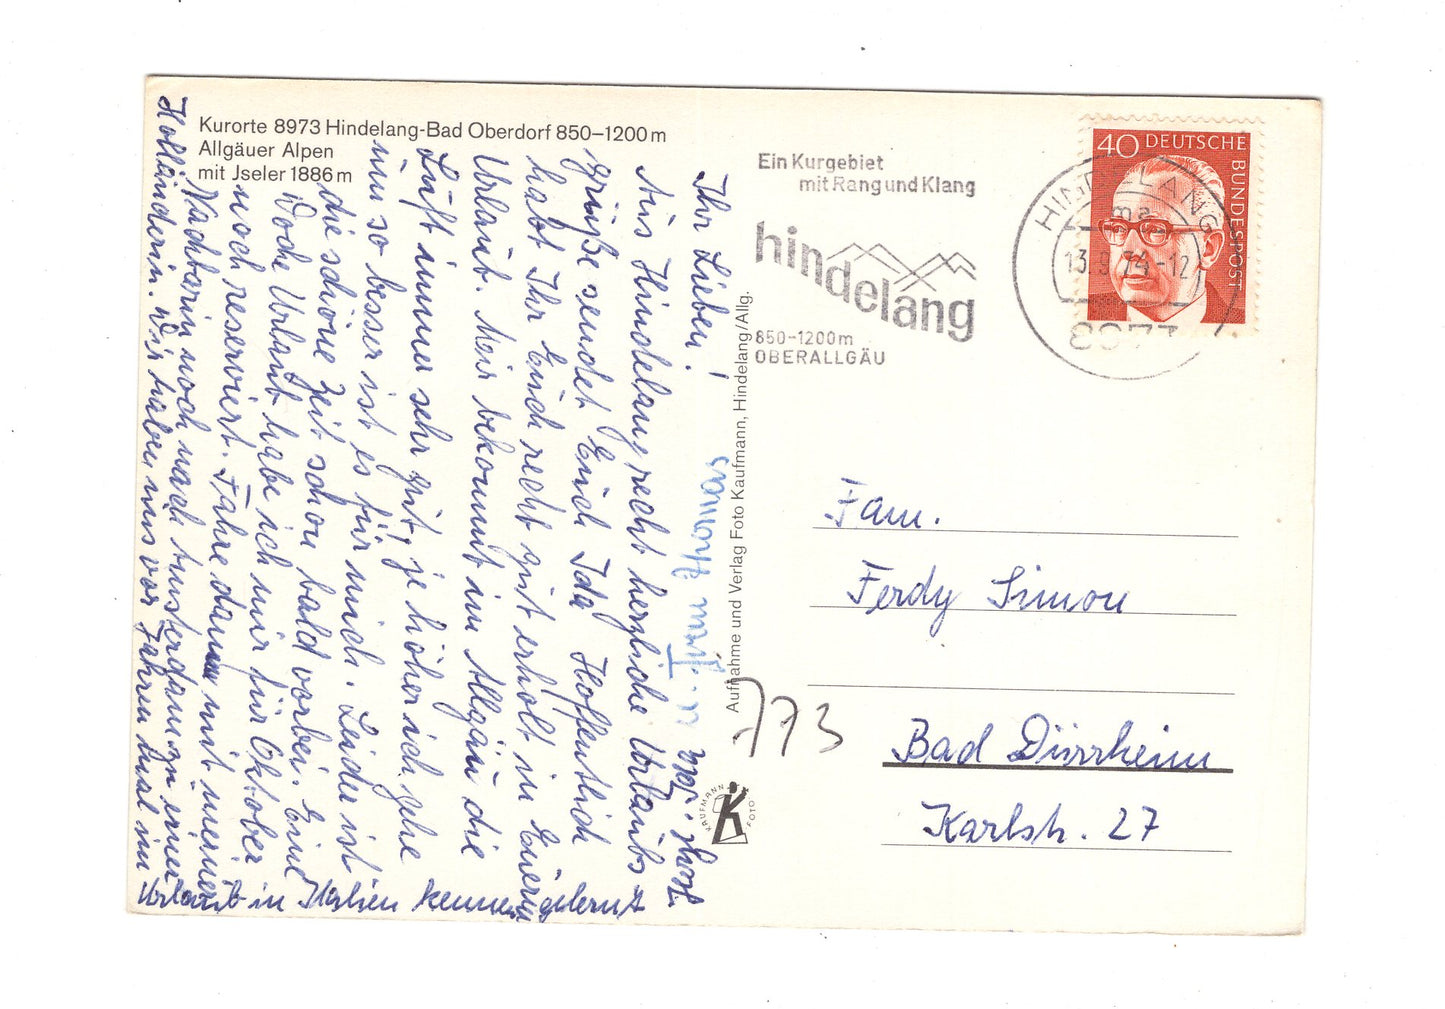 Kurorte 8973 Hindelang-Bad Oberdorf 850–1200 m
Allgäuer Alpen
mit Jseler 1886 m
Ihr Lieben!
Aus Hindelang recht herzliche Urlaubs
grüße sendet Euch Ida Hoffentlich
habt Ihr Euch recht gut erholt in Eurem
Urlaub. Mir bekommt im Allgäu die
Luft immer sehr gut, je höher ich gehe
um so besser ist es für mich. Leider ist
die schöne Zeit schon bald vorbei. Eine
Woche Urlaub habe ich mir für Oktober
noch reserviert. Fahre dann mit meiner
Nachbarin noch nach Amsterdam zu einer
Holländerin. Wir haben uns vor Jahren mal im
Urlaub in Italien kennengelernt
u. Frau Thomas
Aufnahme und Verlag Foto Kaufmann, Hindelang/Allg.
KAUFMANN
FOTO
Ein Kurgebiet
mit Rang und Klang
hindelang
850-1200m
OBERALLGÄU
HINDELANG
ma
13.9.74-12
8973
40 DEUTSCHE
BUNDESPOST
Fam.
Ferdy Simon
773
Bad Dürrheim
Karlstr. 27